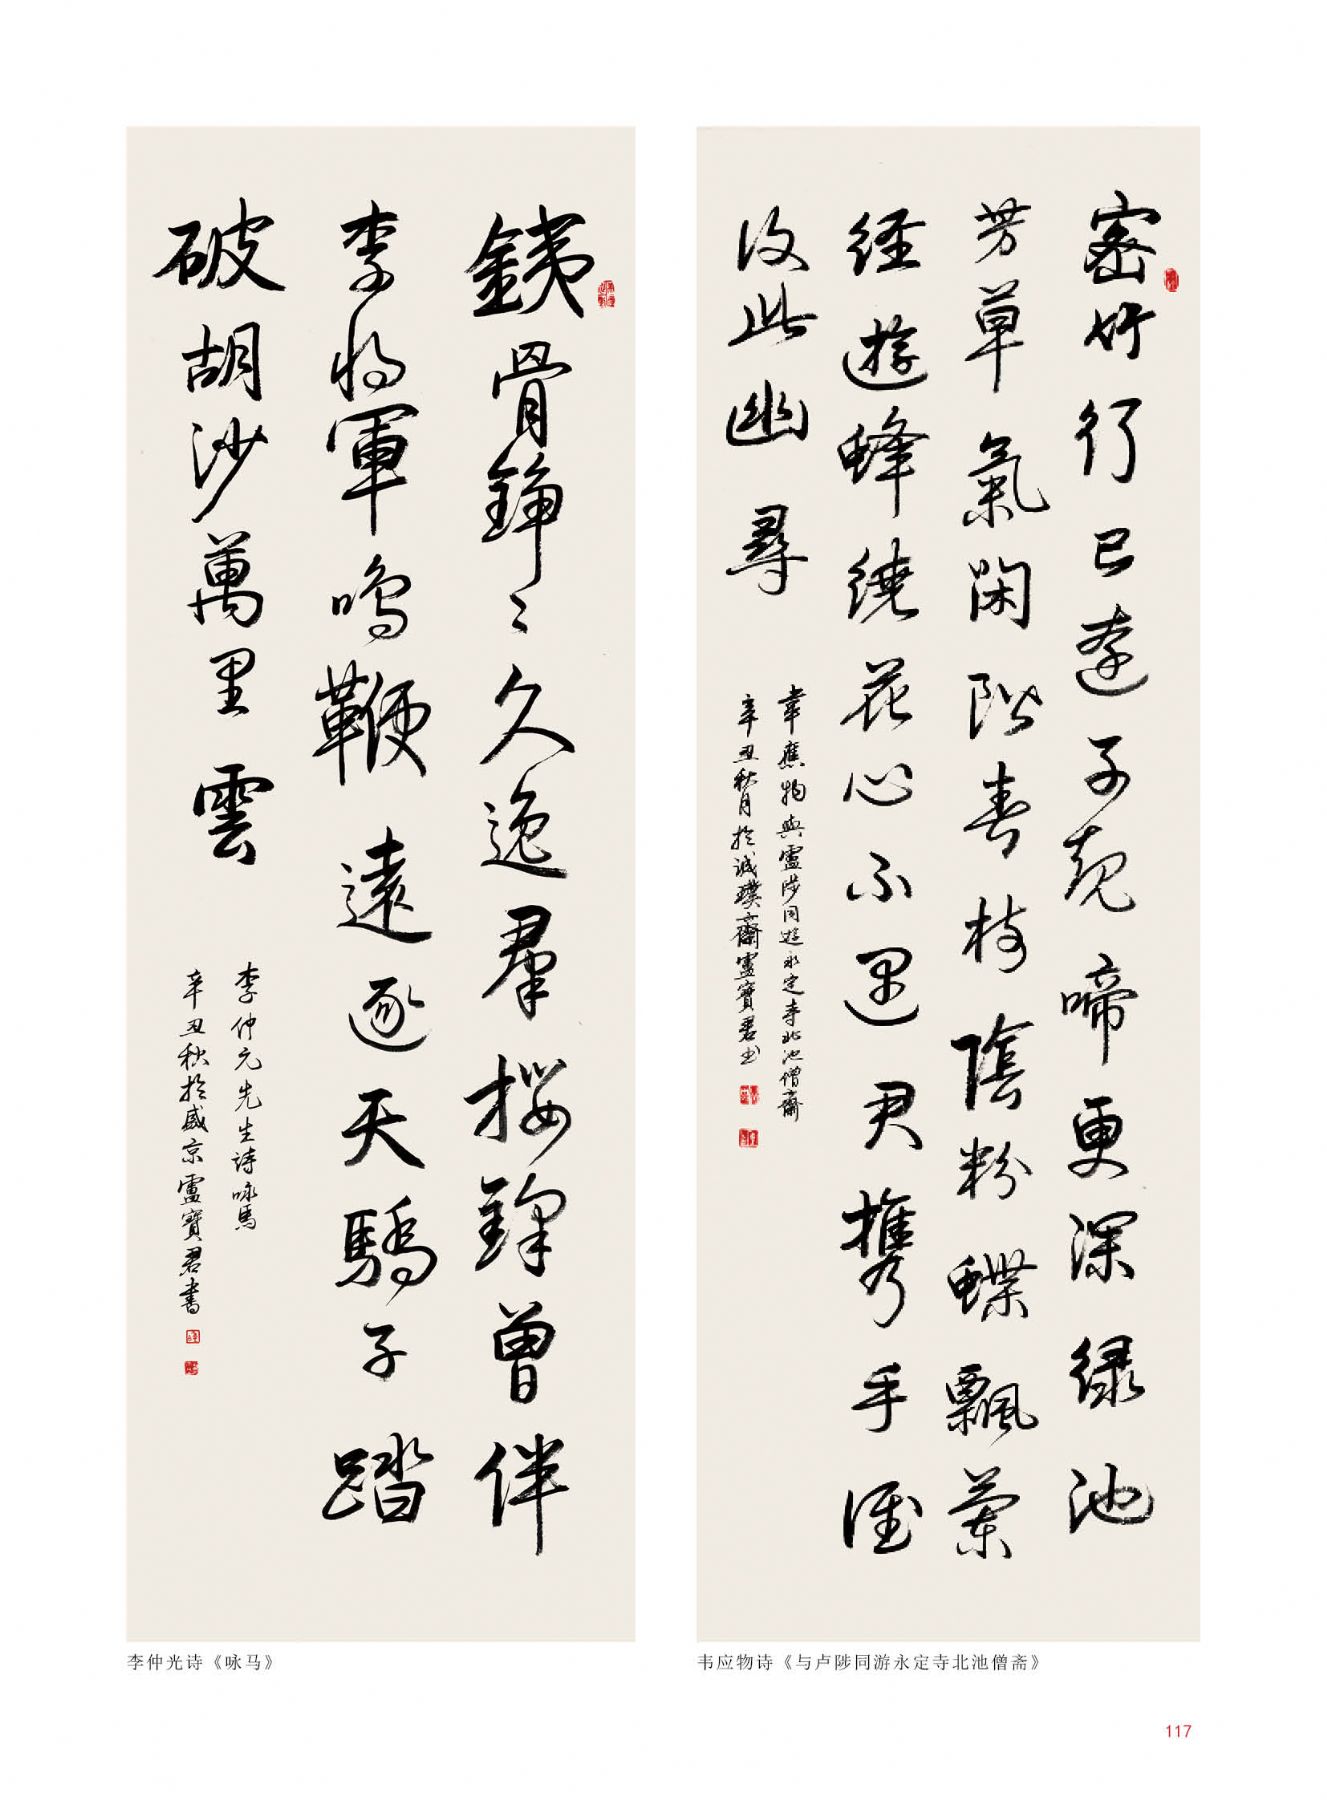 銕骨錚〻久逸羣攖鋒曾伴
李將軍鳴鞭遠逐天驕子踏
破胡沙萬里雲
李仲元先生詩咏馬
辛丑秋於盛京盧寶君書
李仲光诗《咏马》
密竹行已遠子規啼更深緑池
芳草氣閑階春樹陰粉蝶飄蘭
經遊蜂繞花心不遇君攜手誰
復此幽尋
韋應物與盧陟同遊永定寺北池僧齋
辛丑秋月於誠璞齋盧寶君書
韦应物诗《与卢陟同游永定寺北池僧斋》
117